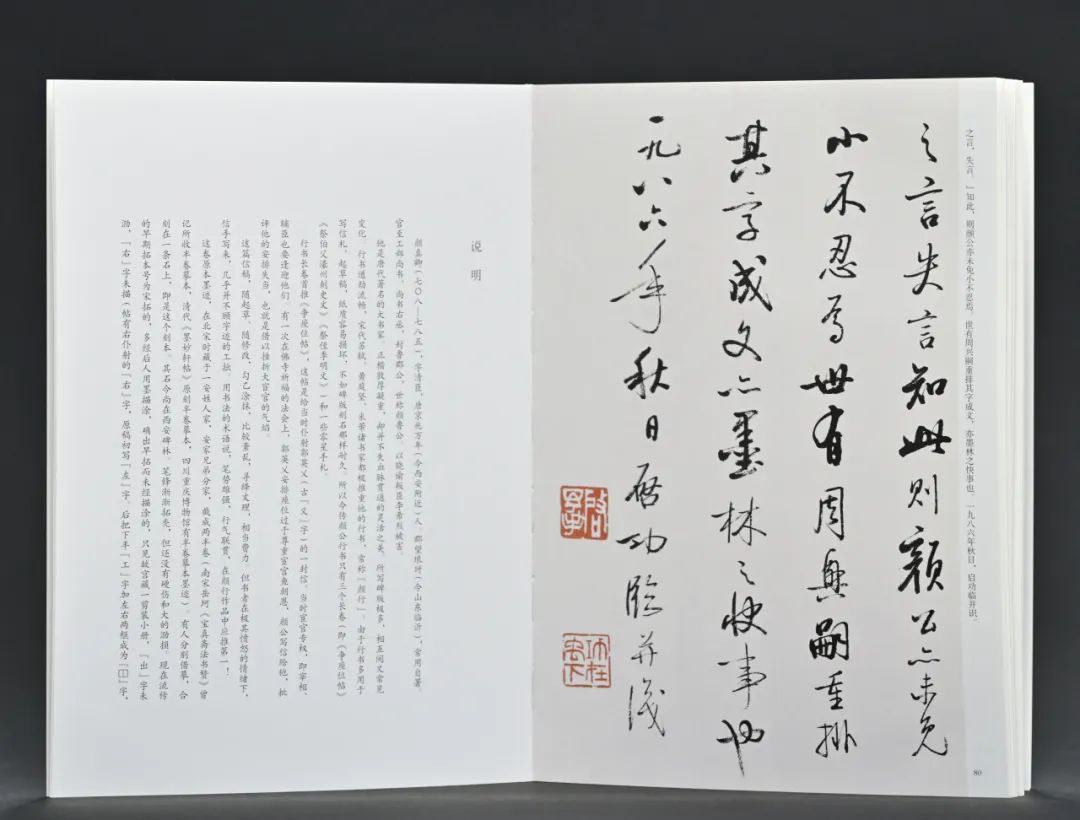 之言,失言。』如此,则颜公亦未免小不忍焉。世有周兴嗣重排其字成文,亦墨林之快事也。一九八六年秋日,启功临并识。
之言失言如此则顏公亦未免
小不忍焉世有周興嗣重排
其字成文亦墨林之快事也
一九八六年秋日啓功臨并識
80
说明
颜真卿(七〇八—七八五),字清臣,唐京兆万年(今西安附近)人,郡望琅玡(今山东临沂),常用自署。
官至工部尚书、尚书右丞,封鲁郡公,世称颜鲁公。以晓谕叛臣李希烈被害。
他是唐代著名的大书家。正楷敦厚凝重,却并不失血脉贯通的灵活之美。所写碑版极多,相互间又常见
变化。行书遒劲流畅,宋代苏轼、黄庭坚、米芾诸书家都极推重他的行书,常称『颜行』。由于行书多用于
写信札、起草稿,纸质容易损坏,不如碑版刻石那样耐久。所以今传颜公行书只有三个长卷(即《争座位帖》
《祭伯父濠州刺史文》《祭侄季明文》)和一些零星手札。
行书长卷首推《争座位帖》,这帖是给当时仆射郭英乂(古『乂』字)的一封信。当时宦官专权,即宰相、
辅臣也要逢迎他们。有一次在佛寺祈福的法会上,郭英乂安排座位过于尊重宦官鱼朝恩,颜公写信给他,批
评他的安排失当,也就是借以挫折大宦官的气焰。
这篇信稿,随起草,随修改,勾乙涂抹,比较紊乱,寻绎文理,相当费力。但书者在极其愤怒的情绪下,
信手写来,几乎并不顾字迹的工拙。用书法的术语说,笔势雄强,行气联贯,在颜行作品中应推第一!
这卷原本墨迹,在北宋时藏于一安姓人家,安家兄弟分家,截成两半卷(南宋岳珂《宝真斋法书赞》曾
记所收半卷摹本,清代《墨妙轩帖》原刻半卷摹本,四川重庆博物馆有半卷摹本墨迹)。有人分别借摹,合
刻在一条石上,即是这个刻本。其石今尚在西安碑林。笔锋渐渐拓秃,但还没有硬伤和大的泐损。现在流传
的早期拓本号为宋拓的,多经后人用墨描涂,确出早拓而未经描涂的,只见故宫藏一剪装小册,『出』字未
泐,『右』字未描(帖有右仆射的『右』字,原稿初写『左』字,后把下半『工』字加左右两框成为『囗』字,